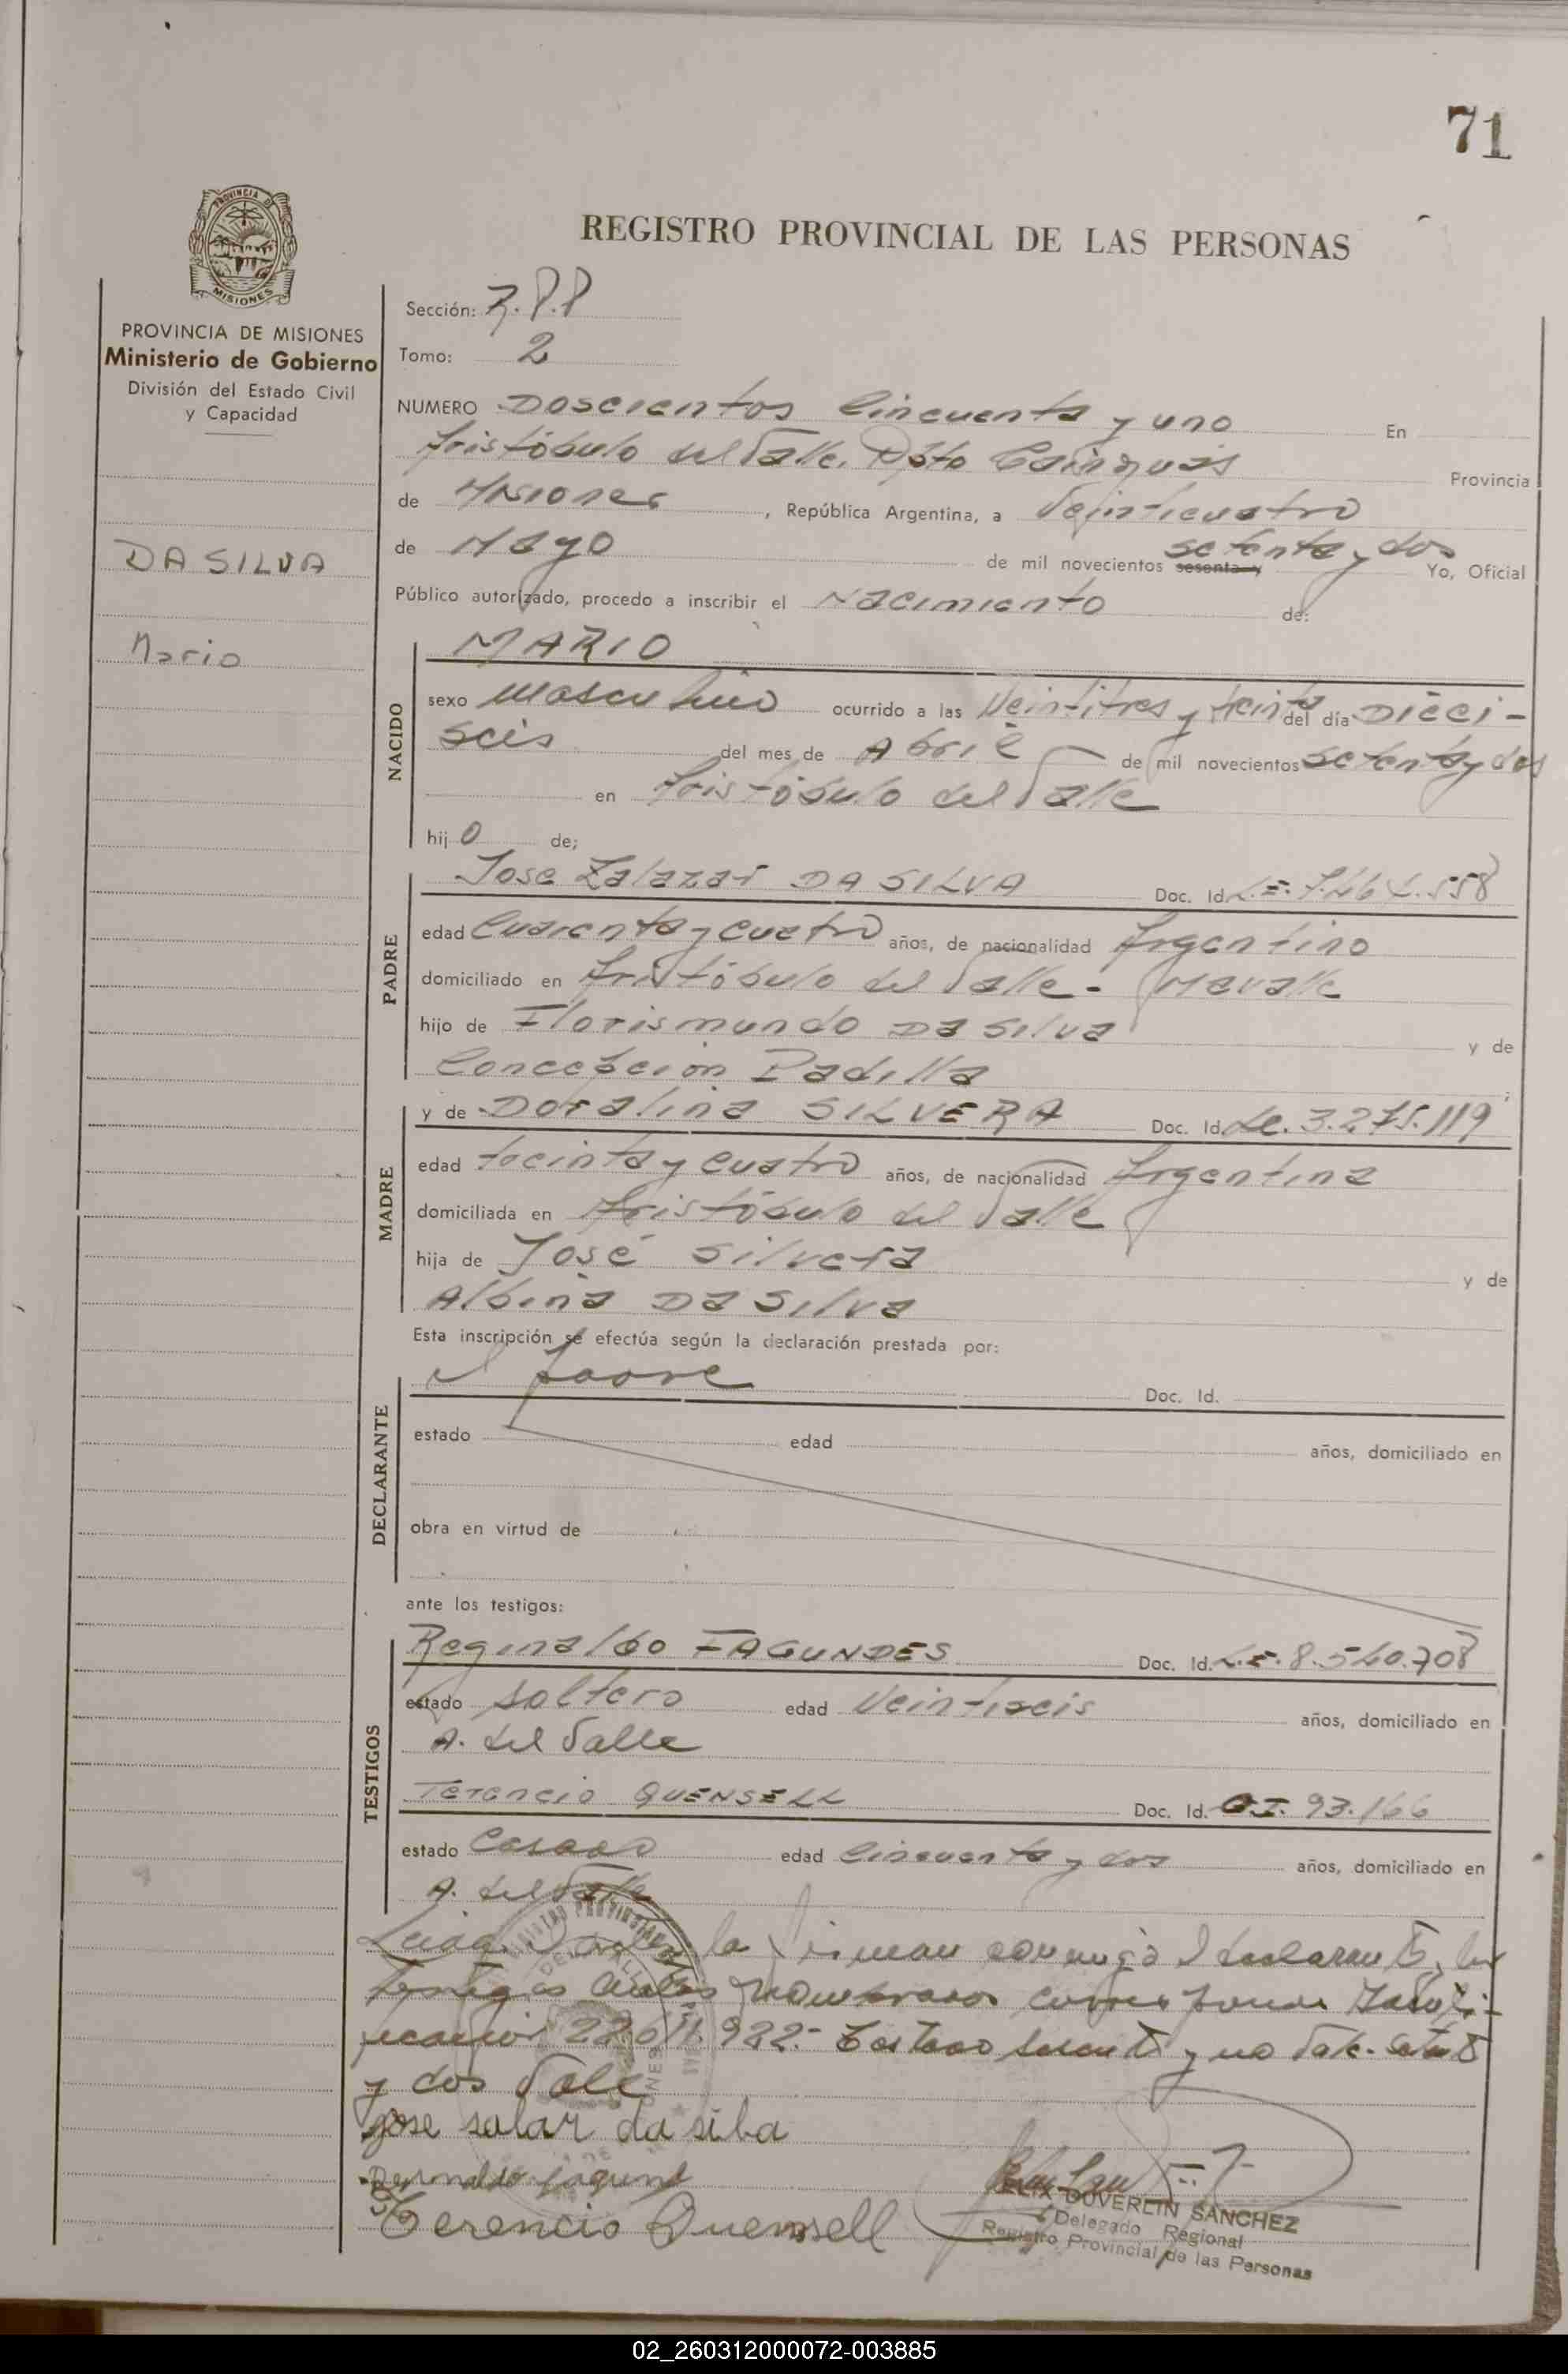 71
REGISTRO PROVINCIAL DE LAS PERSONAS
PROVINCIA DE
MISIONES
PROVINCIA DE MISIONES
Ministerio de Gobierno
División del Estado Civil
y Capacidad
DA SILVA
Mario
Sección: R.P.P
Tomo: 2
NUMERO Doscientos Cincuenta y uno En
Aristóbulo del Valle. Dpto Cainguas Provincia
de Misiones, República Argentina, a Veinticuatro
de Mayo de mil novecientos sesenta y setenta y dos Yo, Oficial
Público autorizado, procedo a inscribir el Nacimiento de:
NACIDO
MARIO
sexo Masculino ocurrido a las Veintitres y treinta del día Dieci-
seis del mes de Abril de mil novecientos setenta y dos
en Aristóbulo del Valle
hijo de;
PADRE
Jose Zalazar DA SILVA Doc. Id. L.E. 558
edad Cuarenta y cuatro años, de nacionalidad Argentino
domiciliado en Aristóbulo del Valle -
hijo de Florismundo Da Silva y de
Concepcion Padilla
MADRE
y de Doralina SILVERA Doc. Id. Lc. 3.275.119
edad treinta y cuatro años, de nacionalidad Argentina
domiciliada en Aristóbulo del Valle
hija de José Silvera y de
Albina Da Silva
Esta inscripción se efectúa según la declaración prestada por:
DECLARANTE
el padre Doc. Id.
estado edad años, domiciliado en
obra en virtud de
ante los testigos:
TESTIGOS
Reginaldo FAGUNDES Doc. Id. L.E. 8.540.708
estado soltero edad Veintiseis años, domiciliado en
A. del Valle
Terencio QUENSELL Doc. Id. C.I. 93.166
estado Casado edad Cincuenta y dos años, domiciliado en
A. del Valle
Leida la firman conmigo el declarante, los
testigos nombrados corresponde
Testado sesenta y no Vale. setenta
y dos Vale
jose salar da silba
Terencio Quensell
FELIX DUVERLIN SANCHEZ
Delegado Regional
Registro Provincial de las Personas
02_260312000072-003885